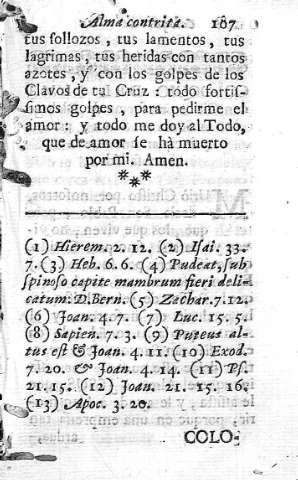 Alma contrita. 107
tus sollozos, tus lamentos, tus
lagrimas, tus heridas con tantos
azotes, y con los golpes de los
Clavos de tu Cruz: todo fortis-
simos golpes, para pedirme el
amor: y todo me doy al Todo,
que de amor se hà muerto
por mi. Amen.
(1) Hierem. 2. 12. (2) Isai. 33.
7. (3) Heb. 6. 6. (4) Pudeat, sub
spinoso capite mambrum fieri deli-
catum. D. Bern. (5) Zachar. 7. 12.
(6) Joan. 4. 7. (7) Luc. 15. 5.
(8) Sapien. 7. 3. (9) Puteus al-
tus est & Joan. 4. 11. (10) Exod.
7. 20. & Joan. 4. 14. (11) Ps.
21. 15. (12) Joan. 21. 15. 16.
(13) Apoc. 3. 20.
COLO-